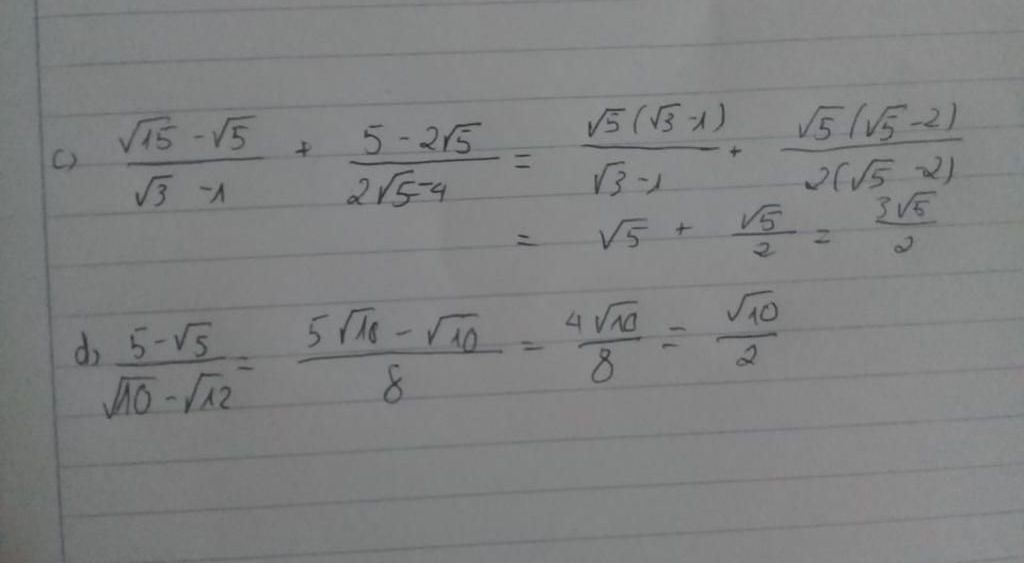 c) (√15 - √5)/(√3 - 1) + (5 - 2√5)/(2√5 - 4) = √5(√3 - 1)/(√3 - 1) + √5(√5 - 2)/2(√5 - 2)
= √5 + √5/2 = 3√5/2
d) (5 - √5)/(√10 - √12) = (5√10 - √10)/8 = 4√10/8 = √10/2